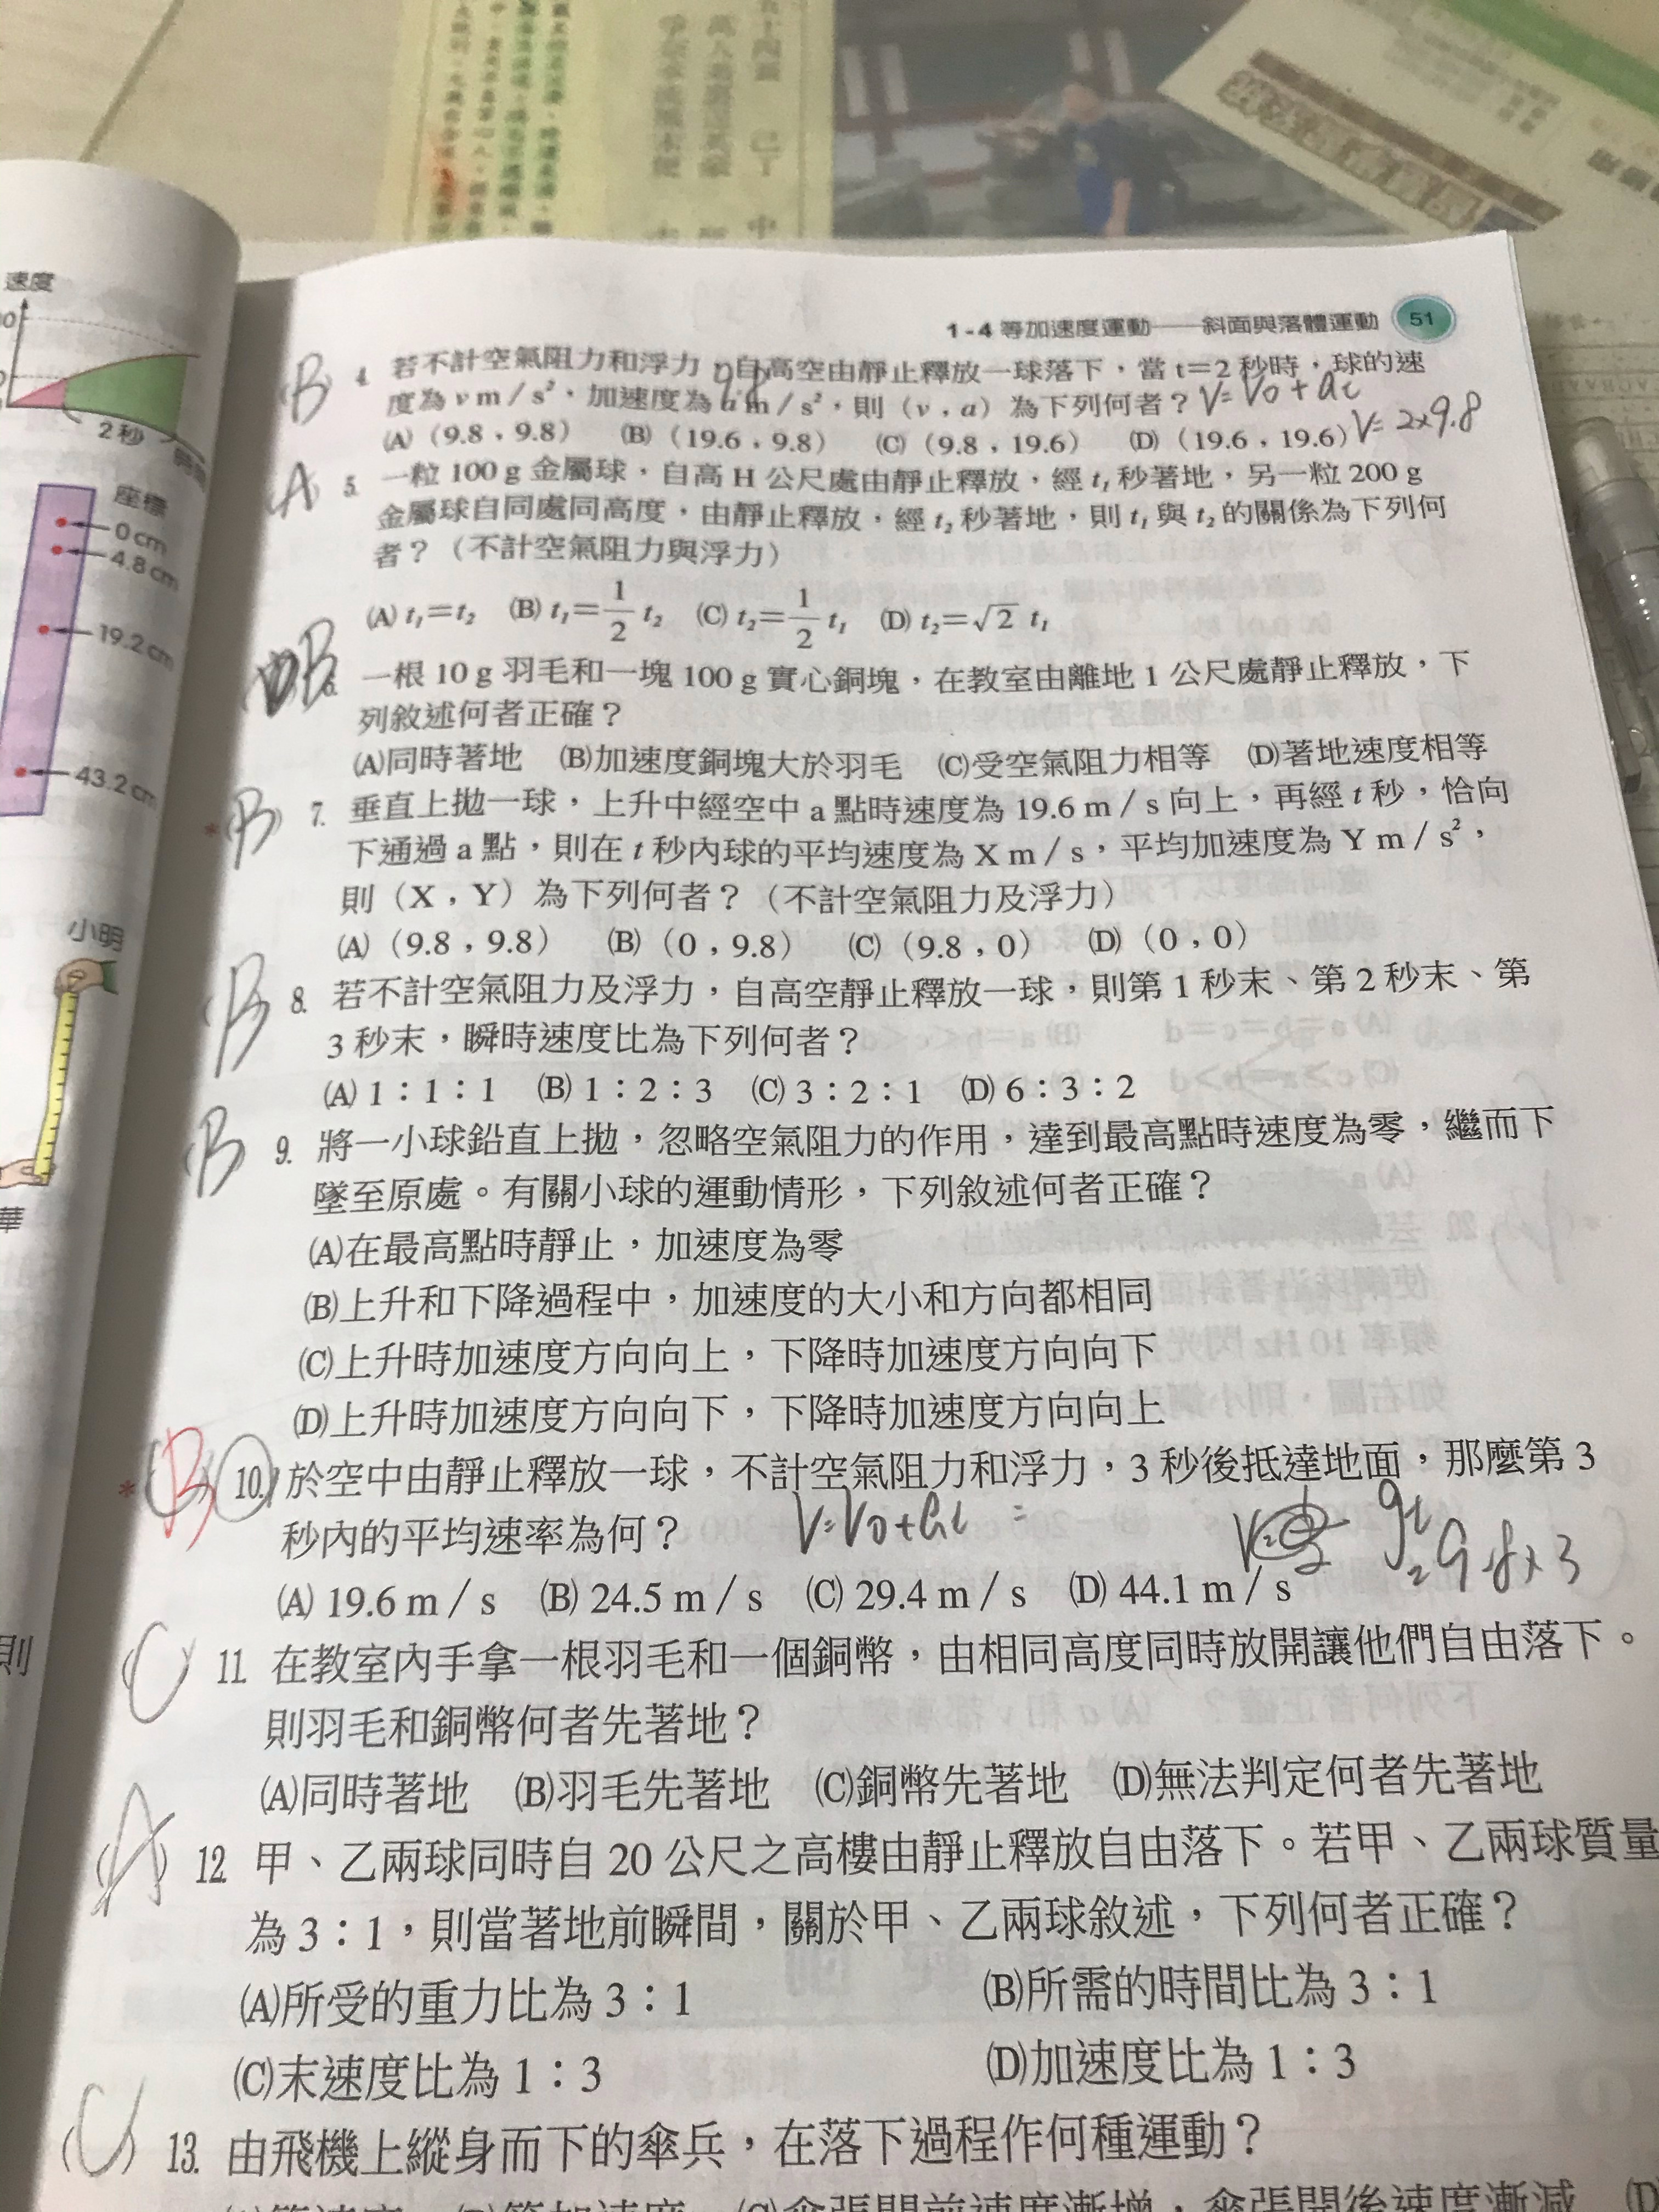 速度
2秒
座標
0 cm
4.8 cm
19.2 cm
43.2 cm
小明
華
則
1-4 等加速度運動——斜面與落體運動 51
B 4. 若不計空氣阻力和浮力，自高空由靜止釋放一球落下，當 t=2 秒時，球的速
度為 v m／s²，加速度為 a m／s²，則（v，a）為下列何者？
9.8
V=V0+at
(A)（9.8，9.8） (B)（19.6，9.8） (C)（9.8，19.6） (D)（19.6，19.6）
V=2×9.8
A 5. 一粒 100 g 金屬球，自高 H 公尺處由靜止釋放，經 t₁ 秒著地，另一粒 200 g
金屬球自同處同高度，由靜止釋放，經 t₂ 秒著地，則 t₁ 與 t₂ 的關係為下列何
者？（不計空氣阻力與浮力）
(A) t₁=t₂ (B) t₁=1/2 t₂ (C) t₂=1/2 t₁ (D) t₂=√2 t₁
B 6. 一根 10 g 羽毛和一塊 100 g 實心銅塊，在教室由離地 1 公尺處靜止釋放，下
列敘述何者正確？
(A)同時著地 (B)加速度銅塊大於羽毛 (C)受空氣阻力相等 (D)著地速度相等
*(B) 7. 垂直上拋一球，上升中經空中 a 點時速度為 19.6 m／s 向上，再經 t 秒，恰向
下通過 a 點，則在 t 秒內球的平均速度為 X m／s，平均加速度為 Y m／s²，
則（X，Y）為下列何者？（不計空氣阻力及浮力）
(A)（9.8，9.8） (B)（0，9.8） (C)（9.8，0） (D)（0，0）
B 8. 若不計空氣阻力及浮力，自高空靜止釋放一球，則第 1 秒末、第 2 秒末、第
3 秒末，瞬時速度比為下列何者？
(A) 1：1：1 (B) 1：2：3 (C) 3：2：1 (D) 6：3：2
B 9. 將一小球鉛直上拋，忽略空氣阻力的作用，達到最高點時速度為零，繼而下
墜至原處。有關小球的運動情形，下列敘述何者正確？
(A)在最高點時靜止，加速度為零
(B)上升和下降過程中，加速度的大小和方向都相同
(C)上升時加速度方向向上，下降時加速度方向向下
(D)上升時加速度方向向下，下降時加速度方向向上
*(B) 10. 於空中由靜止釋放一球，不計空氣阻力和浮力，3 秒後抵達地面，那麼第 3
秒內的平均速率為何？
V=V0+at =
gt
=9.8×3
(A) 19.6 m／s (B) 24.5 m／s (C) 29.4 m／s (D) 44.1 m／s
(C) 11. 在教室內手拿一根羽毛和一個銅幣，由相同高度同時放開讓他們自由落下。
則羽毛和銅幣何者先著地？
(A)同時著地 (B)羽毛先著地 (C)銅幣先著地 (D)無法判定何者先著地
(A) 12. 甲、乙兩球同時自 20 公尺之高樓由靜止釋放自由落下。若甲、乙兩球質量
為 3：1，則當著地前瞬間，關於甲、乙兩球敘述，下列何者正確？
(A)所受的重力比為 3：1 (B)所需的時間比為 3：1
(C)末速度比為 1：3 (D)加速度比為 1：3
(C) 13. 由飛機上縱身而下的傘兵，在落下過程作何種運動？
(A)等速度 (B)等加速度 (C)傘張開前速度漸增，傘張開後速度漸減 (D)